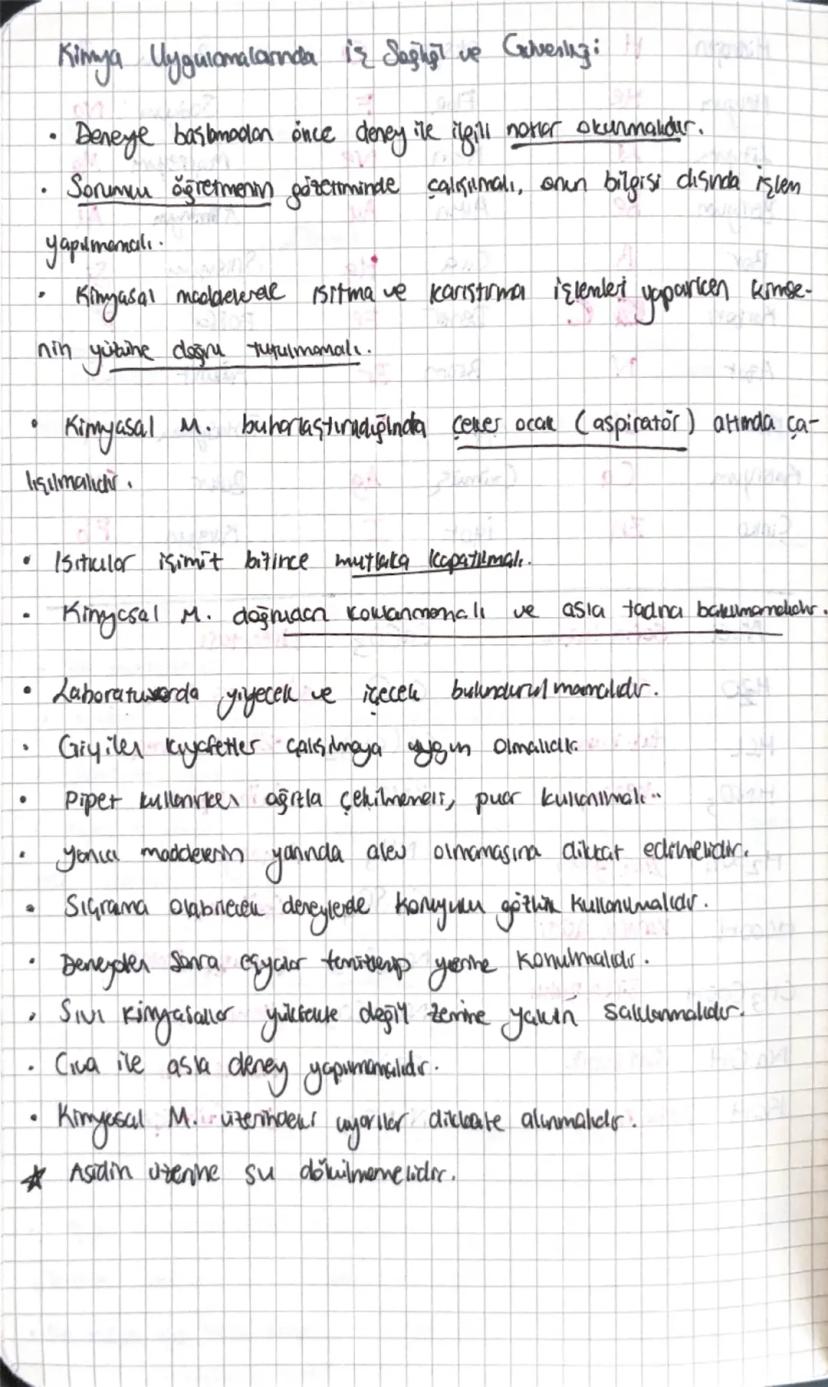 Kimya Uygulamalarında iş Sağlığı ve Güvenliği:
• Deneye başlamadan önce deney ile ilgili notlar okunmalıdır.
• Sorumlu öğretmenin gözetiminde çalışılmalı, onun bilgisi dışında işlem
yapılmamalı.
• Kimyasal maddelerle ısıtma ve karıstırma işlemleri yaparken kimse-
nin yüzüne doğru tutulmamalı.
• Kimyasal M. buharlaştırıldığında çeker ocak (aspiratör) altında ça-
lışılmalıdır.
• Isıtıcılar işimiz bitince mutlaka kapatılmalı.
• Kimyasal M. doğrudan koklanmamalı ve asla tadına bakılmamalıdır.
• Laboratuvarda yiyecek ve içecek bulundurulmamalıdır.
• Giyilen kıyafetler çalışılmaya uygun olmalıdır.
• Pipet kullanırken ağızla çekilmemeli, puar kullanılmalı..
• yanıcı maddelerin yanında alev olmamasına dikkat edilmelidir.
• Sıçrama olabilecek deneylerde koruyucu gözlük kullanılmalıdır.
• Deneyden sonra eşyalar temizlenip yerine konulmalıdır.
• Sıvı kimyasallar yüksekte değil zemine yakın saklanmalıdır.
• Civa ile asla deney yapılmamalıdır.
• Kimyasal M. üzerindeki uyarılar dikkate alınmalıdır.
★ Asidin üzerine su dökülmemelidir.